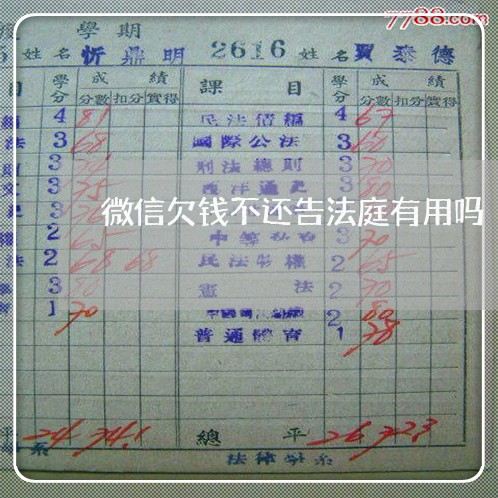 7788.com
學期
姓名 忻鼎明 2616 姓名 賈泰德
目 學分 成績 課目 學分 成績
分數 扣分 實得 分數 扣分 實得
4 81 民法債編 4 67
法 3 68 國際公法 3 60
3 刑法總則 3 70
3 75 西洋通史 3 80
微信欠钱不还告法庭有用吗
2 3 70
法 2 68 68 民法物權 2 65
3 80 憲法 2 70
1 70 2 80
普通體育 1 78
平 24 74.1 總平 26 72.3
系 法律學系